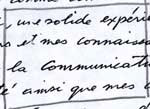 , une solide expérie
et mes connaiss
la communicati
té ainsi que mes